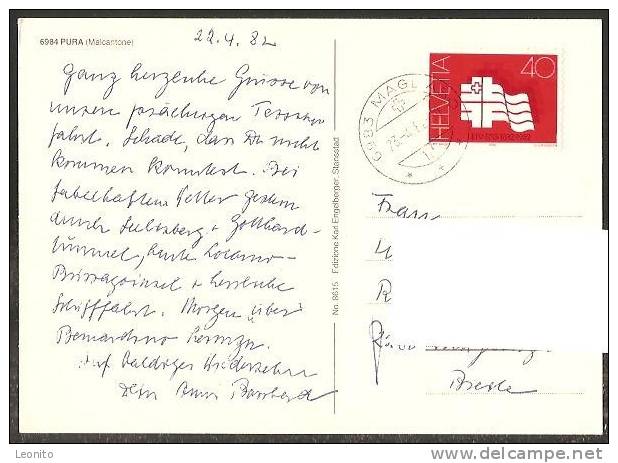 6984 PURA (Malcantone)
22.4.82
Ganz herzliche Grüsse von
unserer prächtigen Tessiner
fahrt. Schade, dass Du nicht
kommen konntest. Bei
fabelhaftem Wetter gestern
durch Seelisberg + Gotthard-
tunnel, heute Locarno-
Brissagoinsel + herrliche
Schifffahrt. Morgen über
Bernardino heimzu.
Auf baldiges Wiedersehn
Dein
No. 8615 Edizione Karl Engelberger, Stansstad
6983 MAGL
HELVETIA
40
Frau
L
R
Leonito
www.delcampe.net